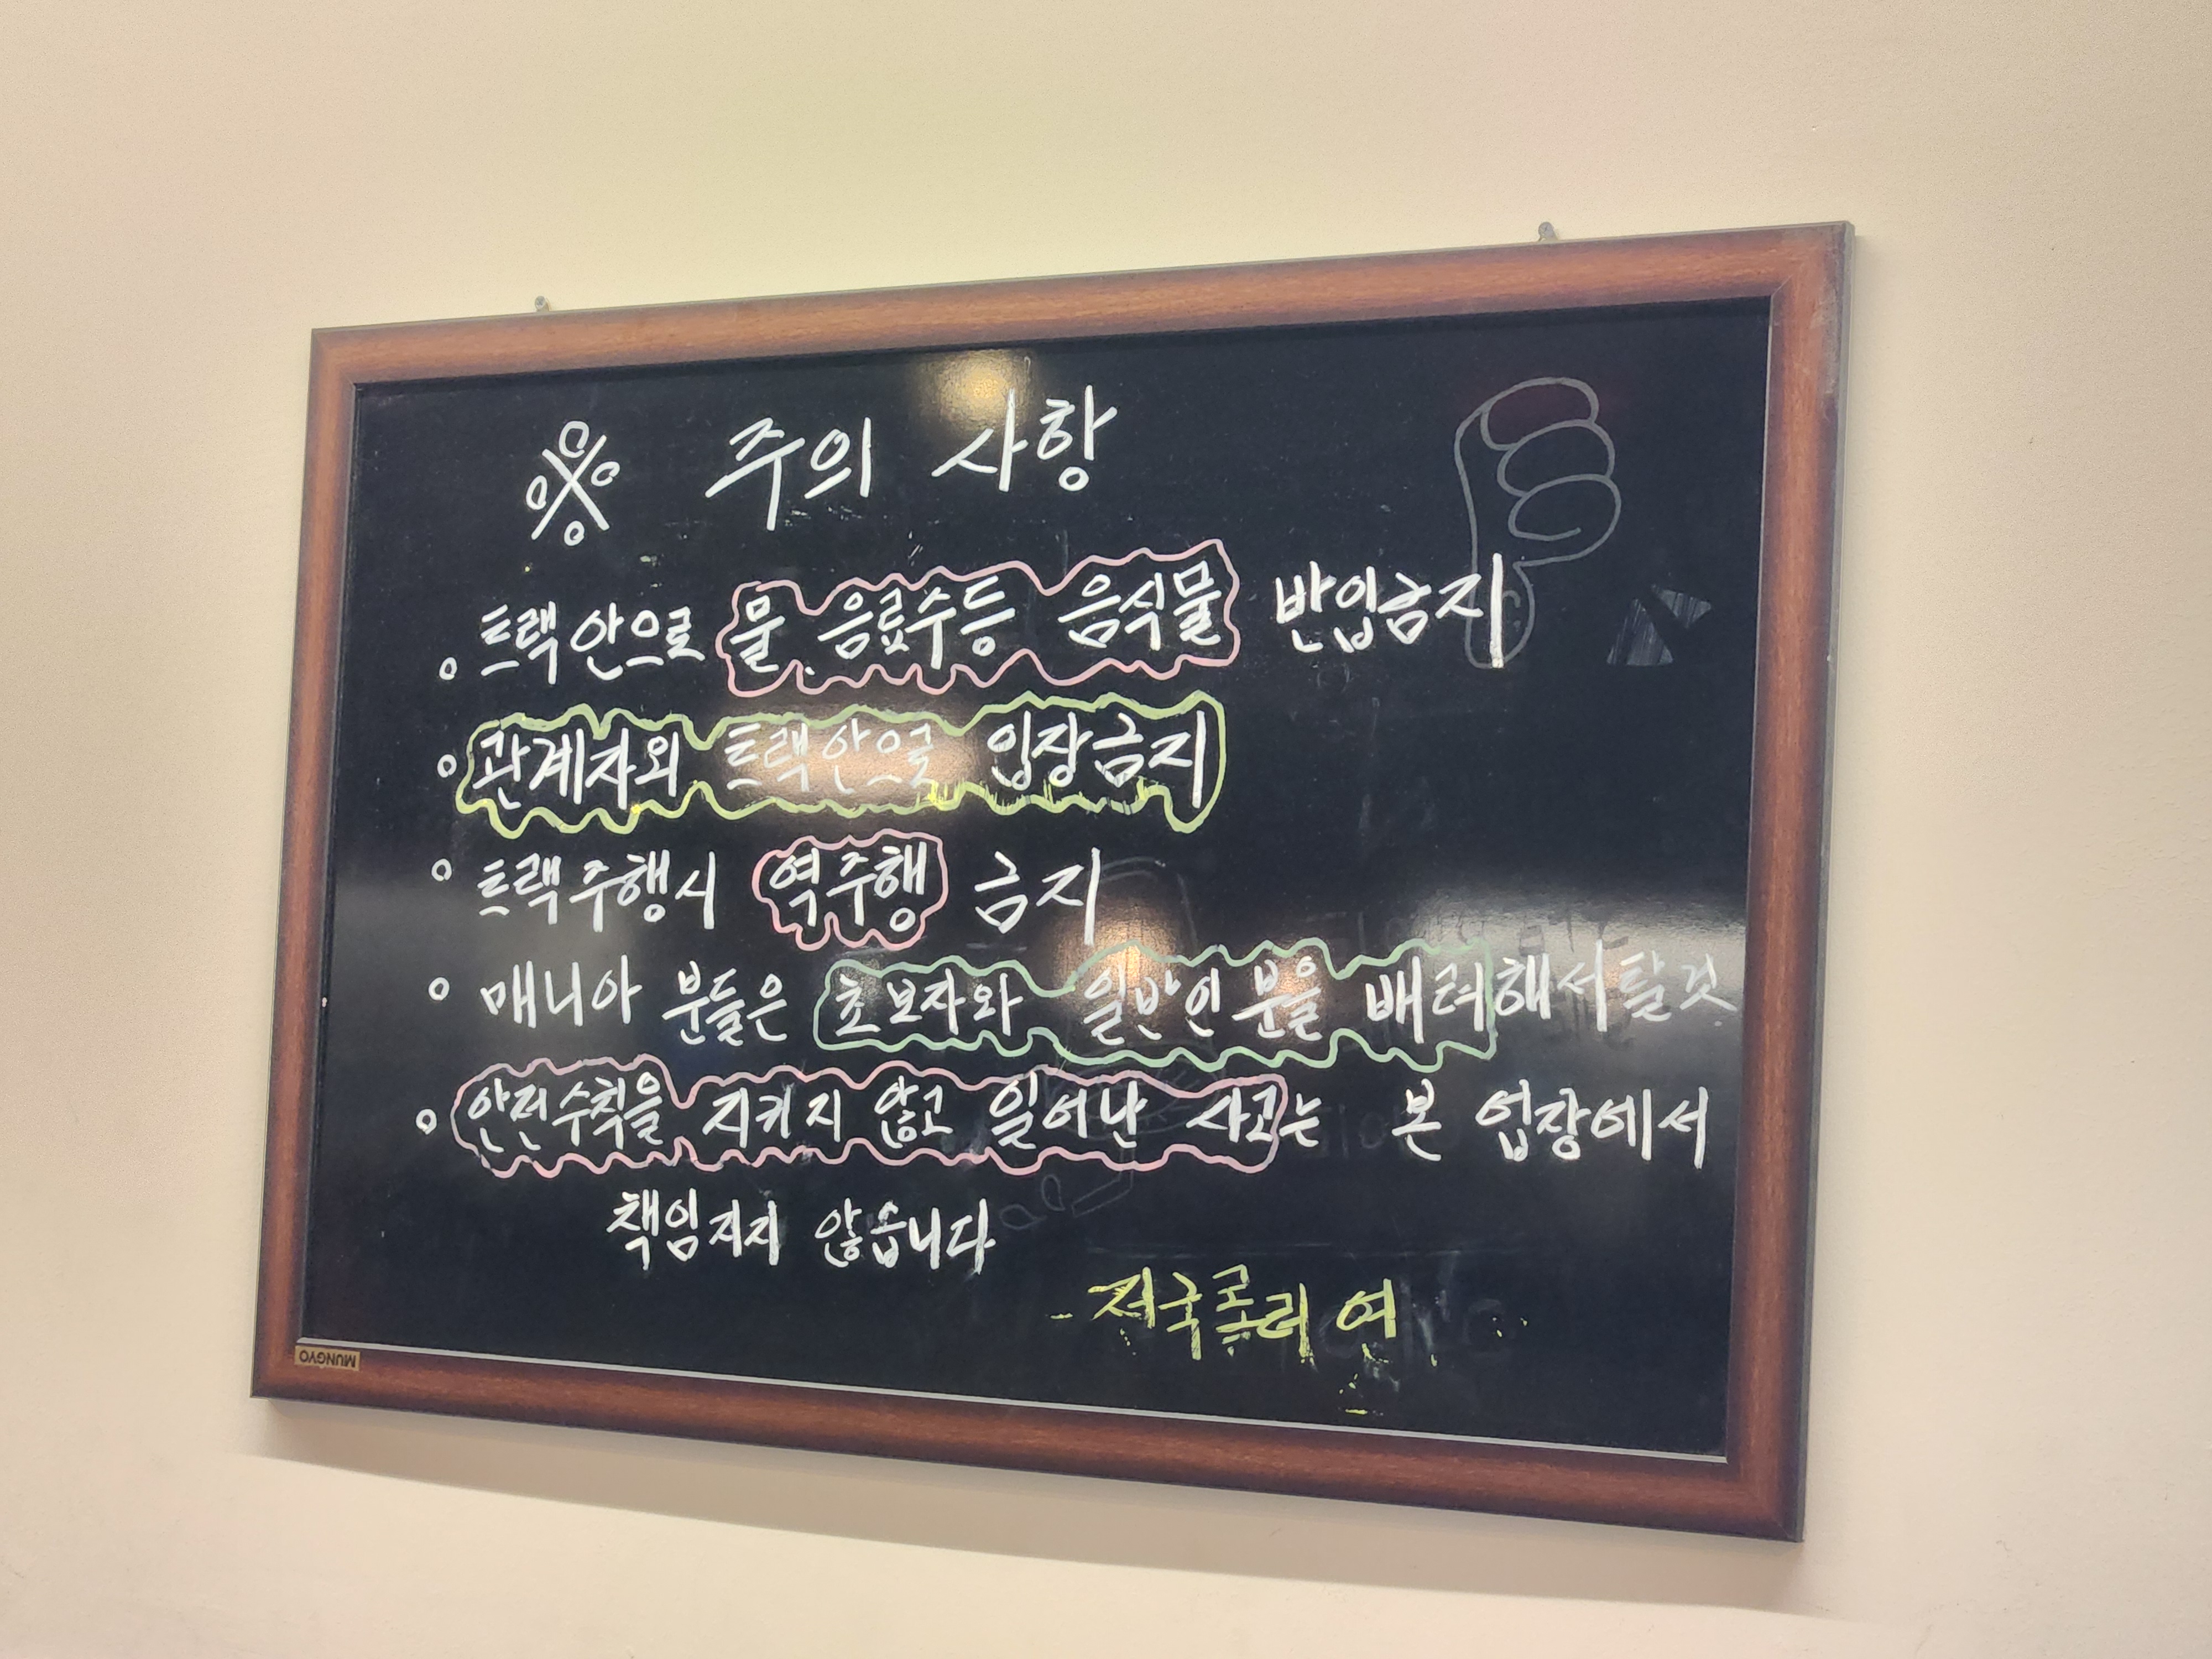 ※ 주의 사항
○ 트랙 안으로 물. 음료수등 음식물 반입금지
○ 관계자외 트랙안으로 입장금지
○ 트랙주행시 역주행 금지
○ 매니아 분들은 초보자와 일반인 분을 배려해서 탈것.
○ 안전수칙을 지키지 않고 일어난 사고는 본 업장에서
책임지지 않습니다
MUNGYO